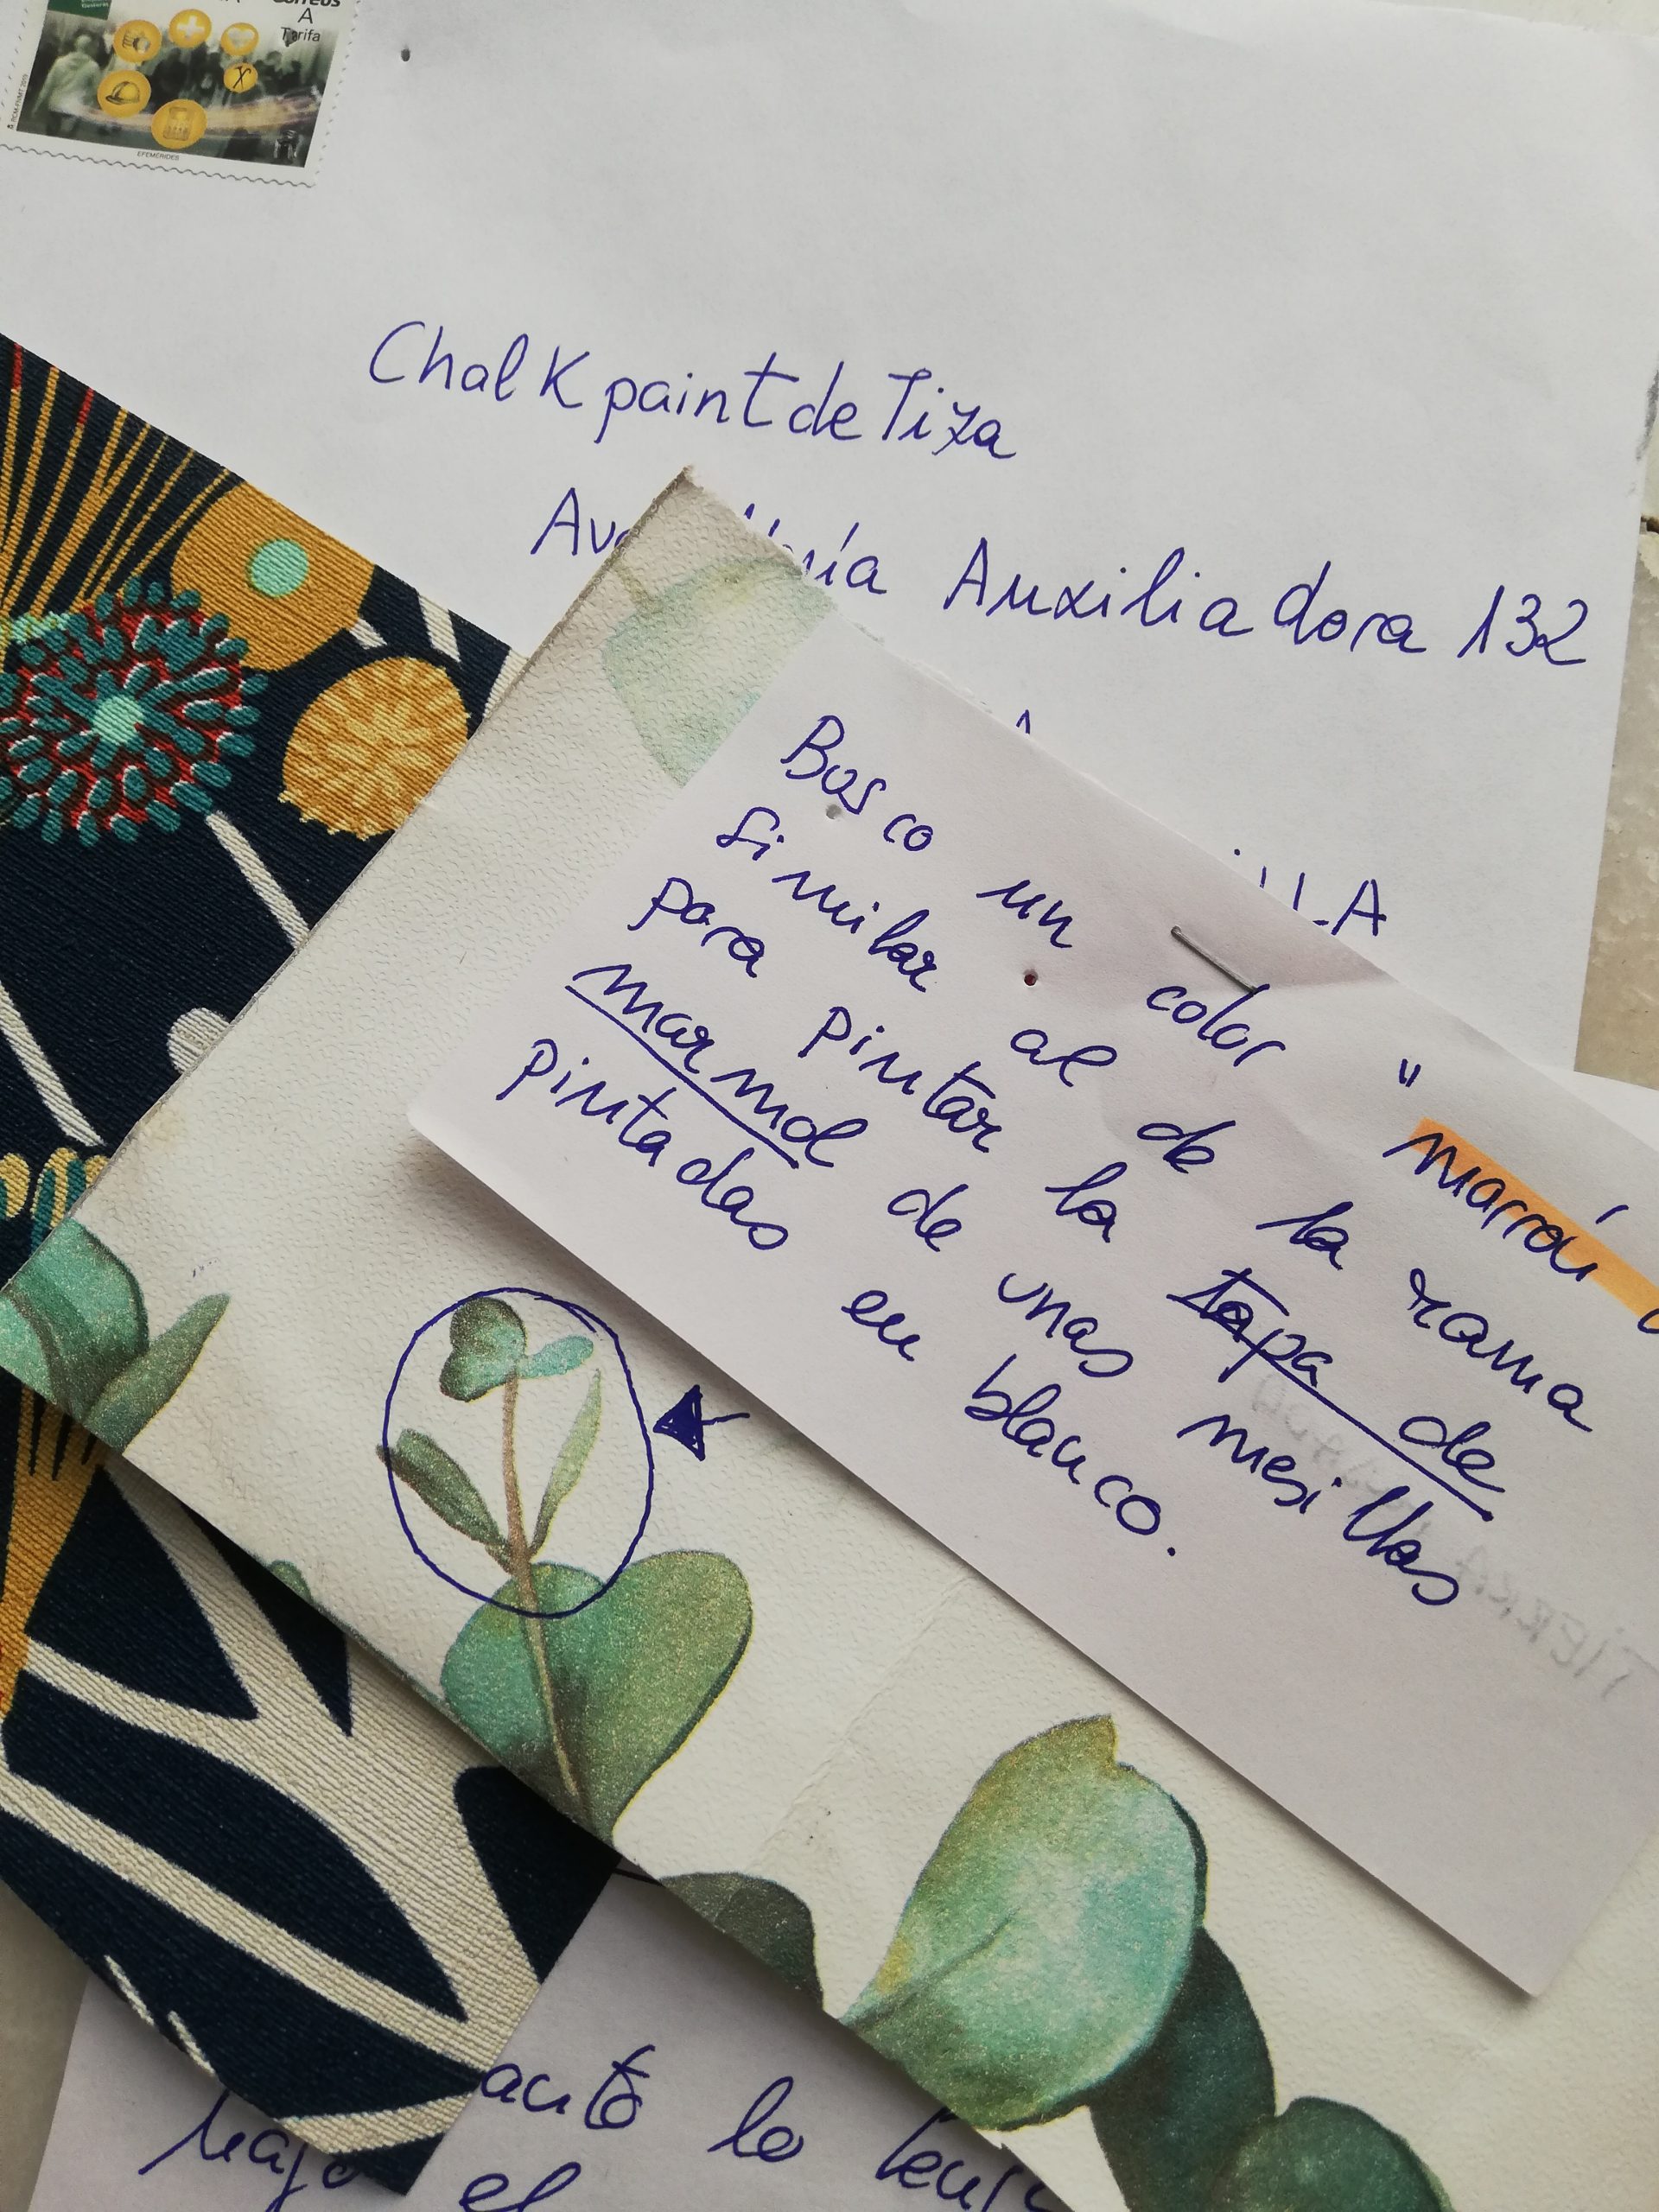 Correos
A
Tarifa
EFEMÉRIDES
Chalk paint de Tiza
Auxiliadora 132
LA
Busco un color "marrón
similar al de la rama
para pintar la tapa de
marmol de unas mesillas
pintadas en blanco.
TIERRA
lo
el